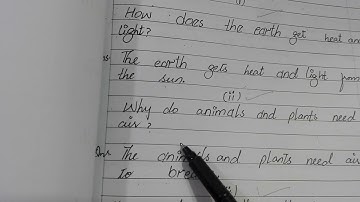 (i)
How does the earth get heat and
light?
Ans The earth gets heat and light from
the sun.
(ii)
Why do animals and plants need
air?
Ans The animals and plants need air
to